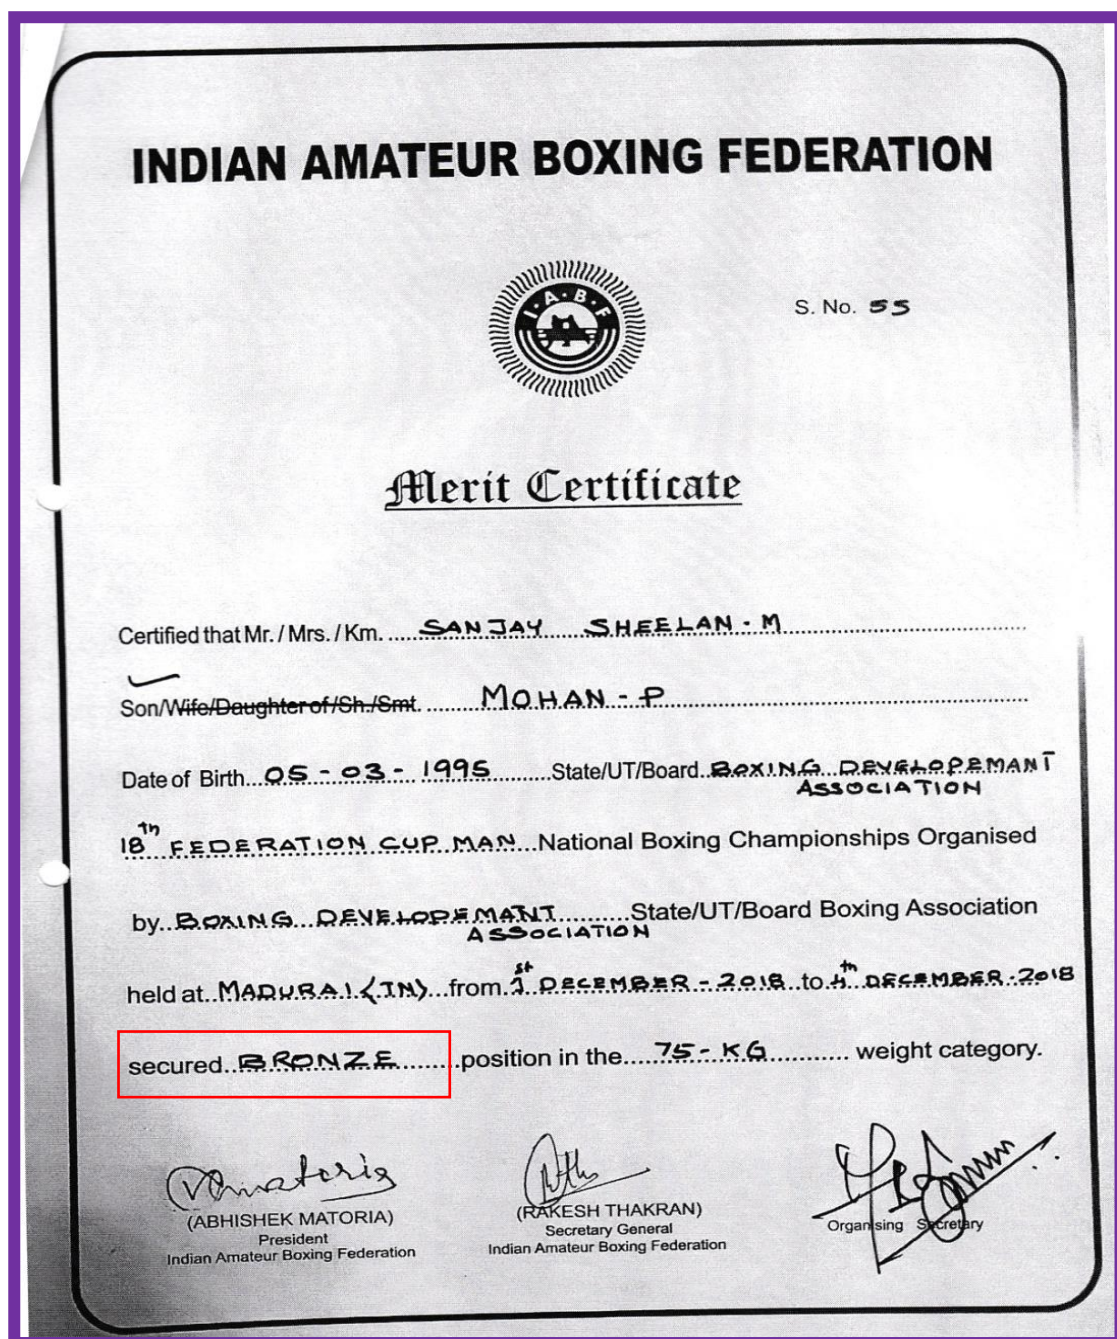 INDIAN AMATEUR BOXING FEDERATION
I.A.B.F
S. No. 55
Merit Certificate
Certified that Mr. / Mrs. / Km. SANJAY SHEELAN - M
Son/Wife/Daughter of /Sh./Smt. MOHAN - P
Date of Birth 05 - 03 - 1995 State/UT/Board BOXING DEVELOPEMANT
ASSOCIATION
18th FEDERATION CUP MAN National Boxing Championships Organised
by BOXING DEVELOPEMANT State/UT/Board Boxing Association
ASSOCIATION
held at MADURAI (TN) from 1st DECEMBER - 2018 to 4th DECEMBER - 2018
secured BRONZE position in the 75 - KG weight category.
(ABHISHEK MATORIA)
President
Indian Amateur Boxing Federation
(RAKESH THAKRAN)
Secretary General
Indian Amateur Boxing Federation
Organising Secretary